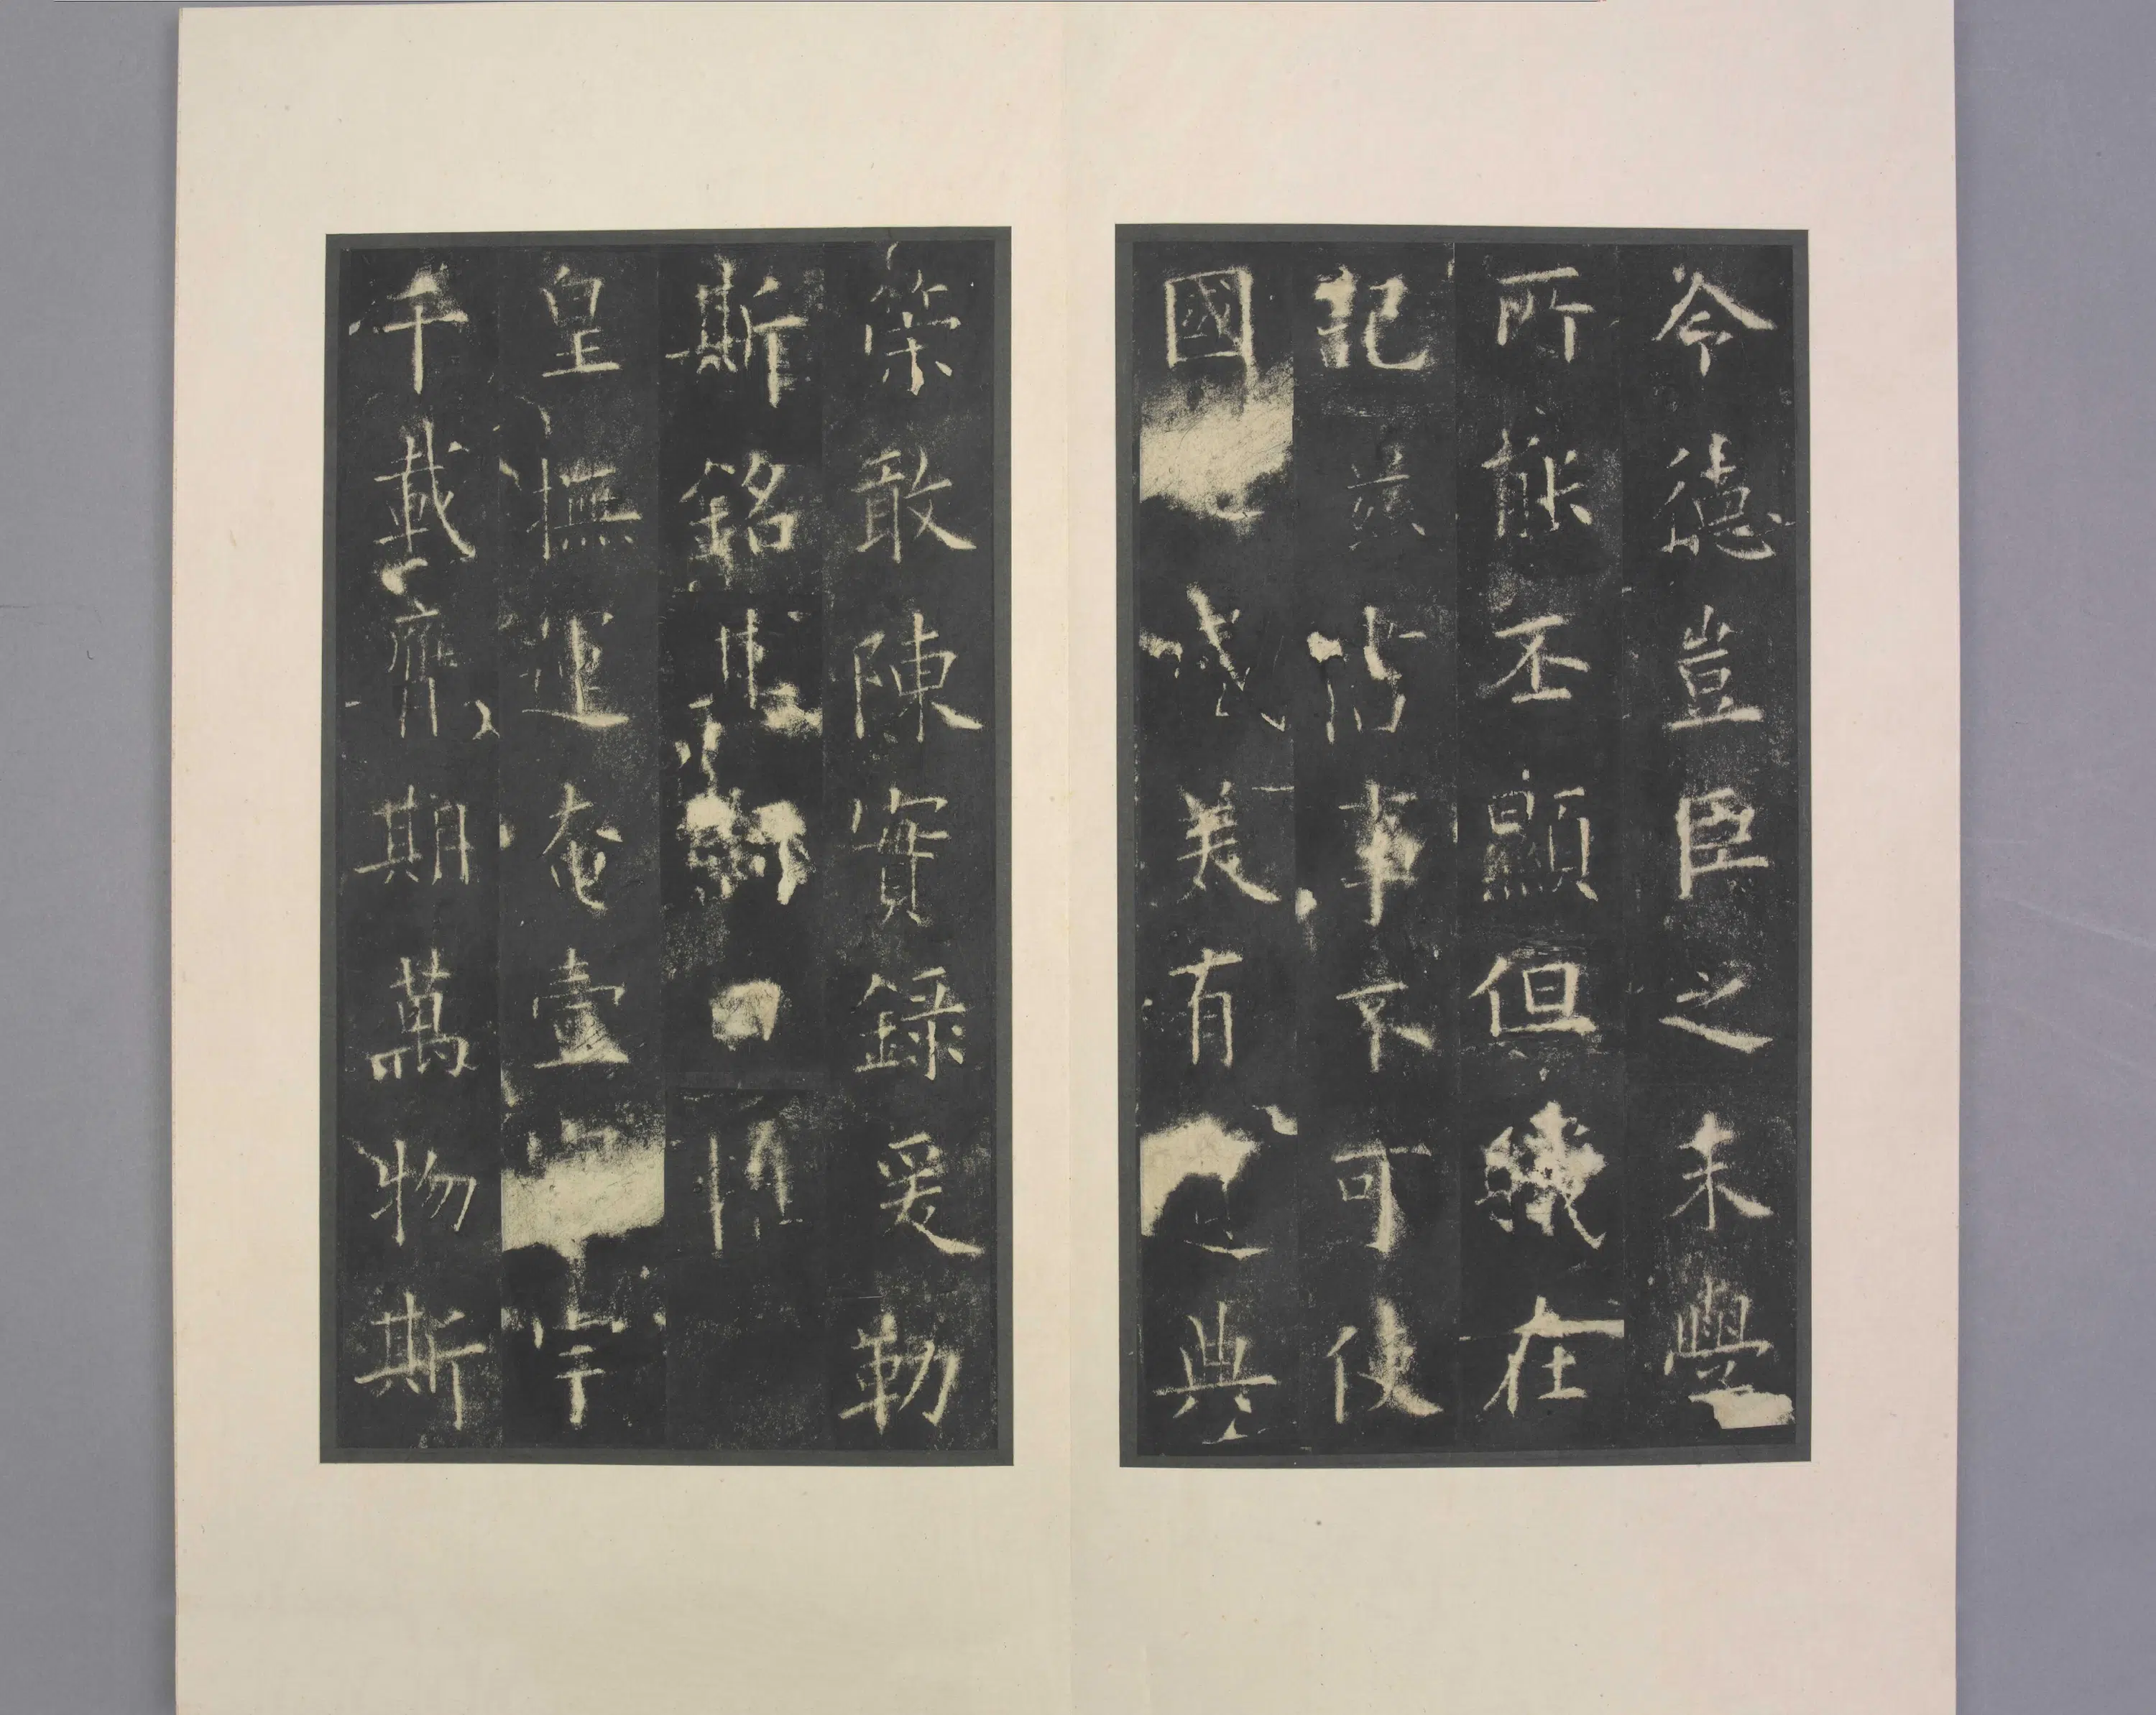 令德豈臣之末學
所能丕顯但職在
記茲事不可使
國美有典
策敢陳實錄爰勒
斯銘
皇撫運奄壹宇
千載期萬物斯